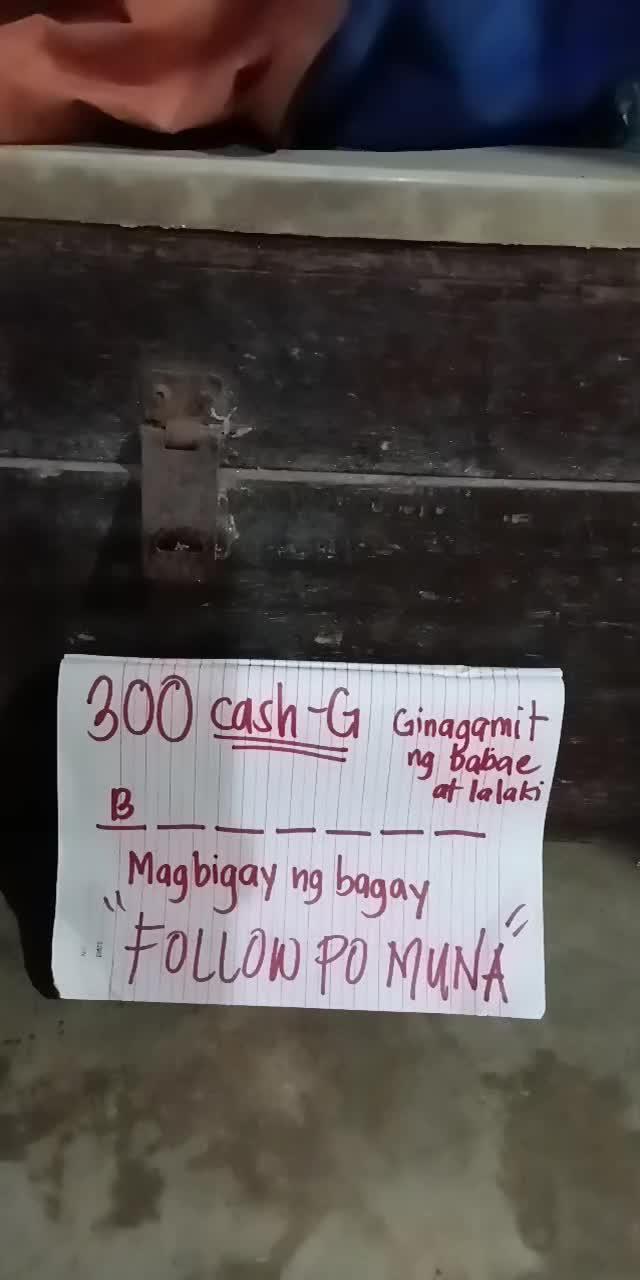 300 cash-G
Ginagamit
ng babae
at lalaki
B _ _ _ _ _ _
Magbigay ng bagay
"FOLLOW PO MUNA"